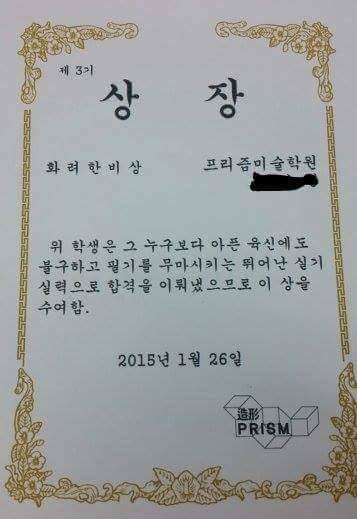 제 3기
상 장
화려한비상 프리즘미술학원
위 학생은 그 누구보다 아픈 육신에도
불구하고 필기를 무마시키는 뛰어난 실기
실력으로 합격을 이뤄냈으므로 이 상을
수여함.
2015년 1월 26일
造形
PRISM